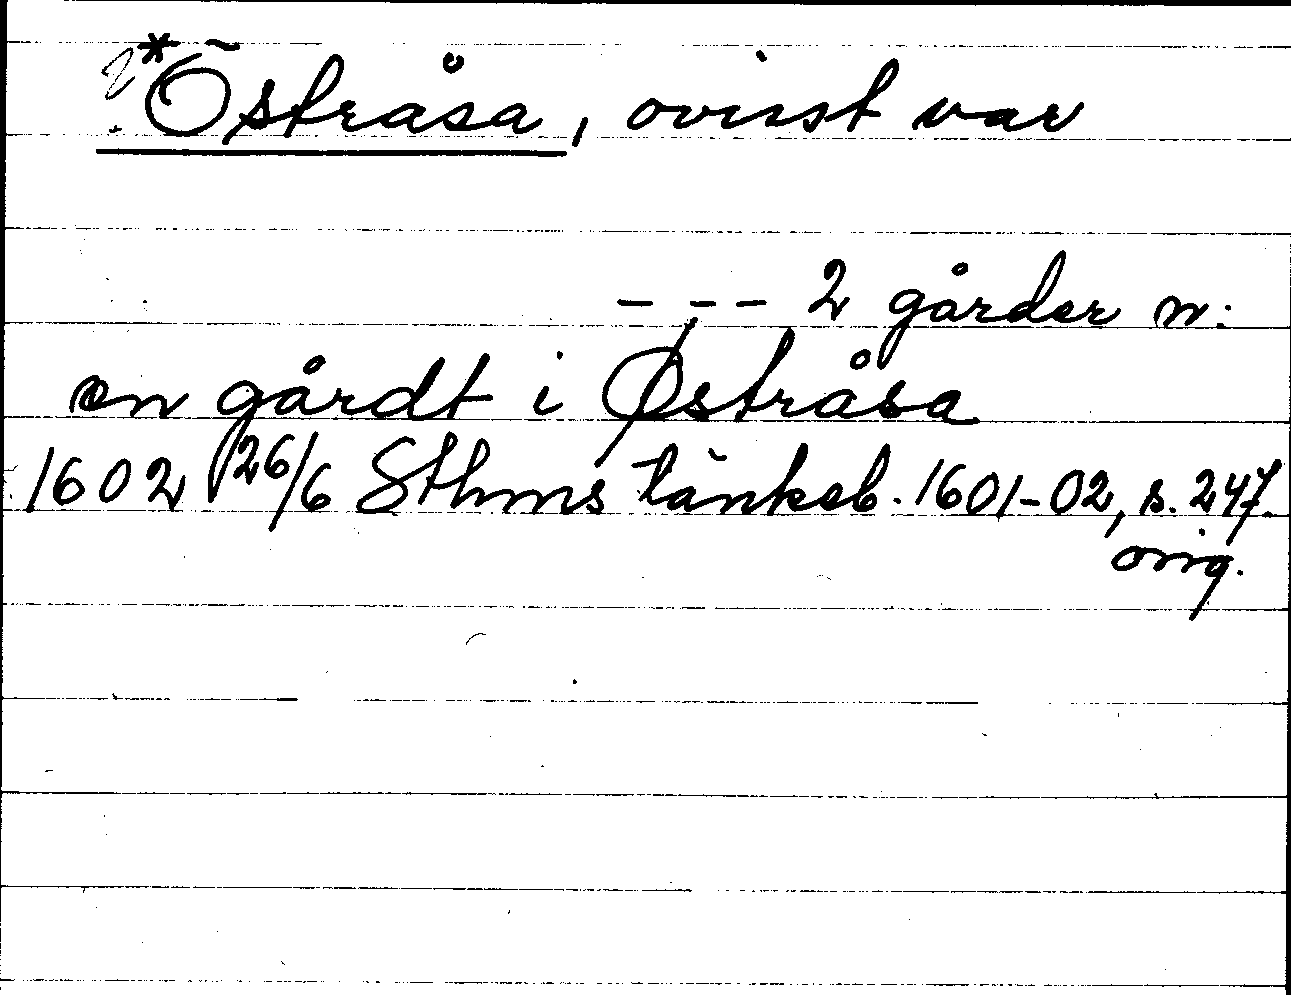 ?*Östråsa, ovisst var
- - - 2 gårder n:
en gårdt i Østråsa
1602 26/6 Sthms tänkeb. 1601-02, s. 247.
orig.